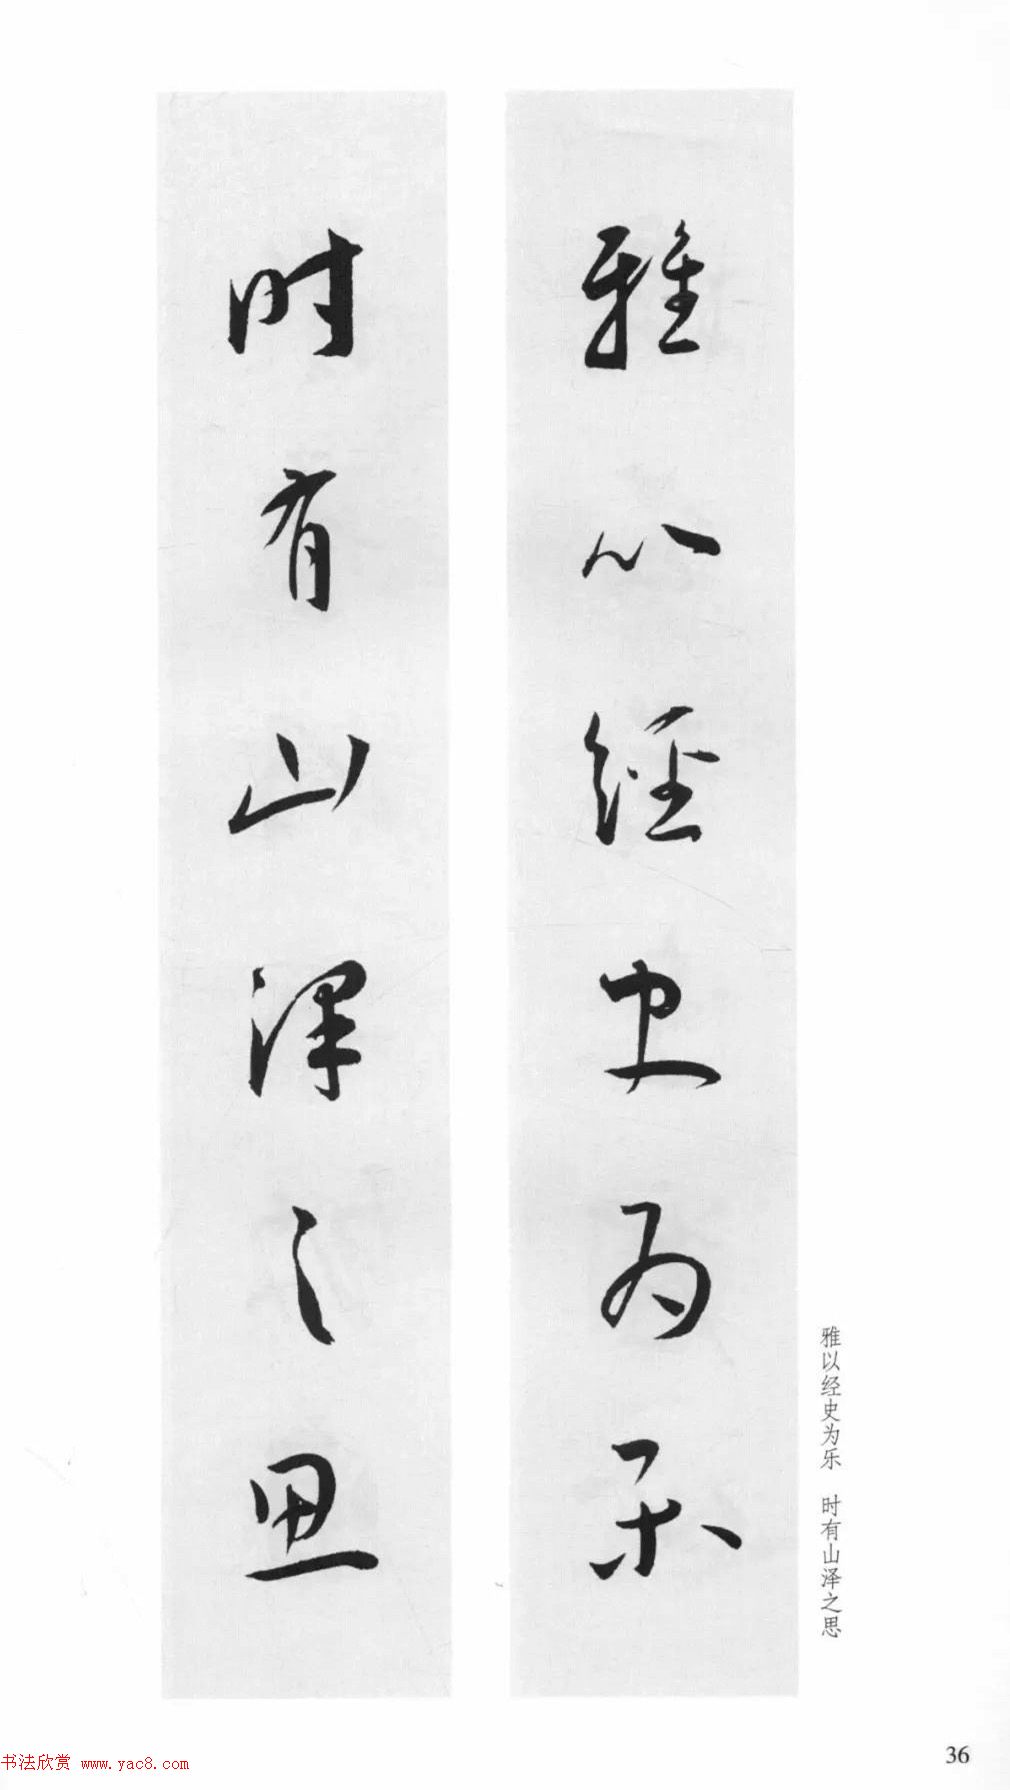 雅以经史为乐
时有山泽之思
雅以经史为乐 时有山泽之思
36
书法欣赏 www.yac8.com